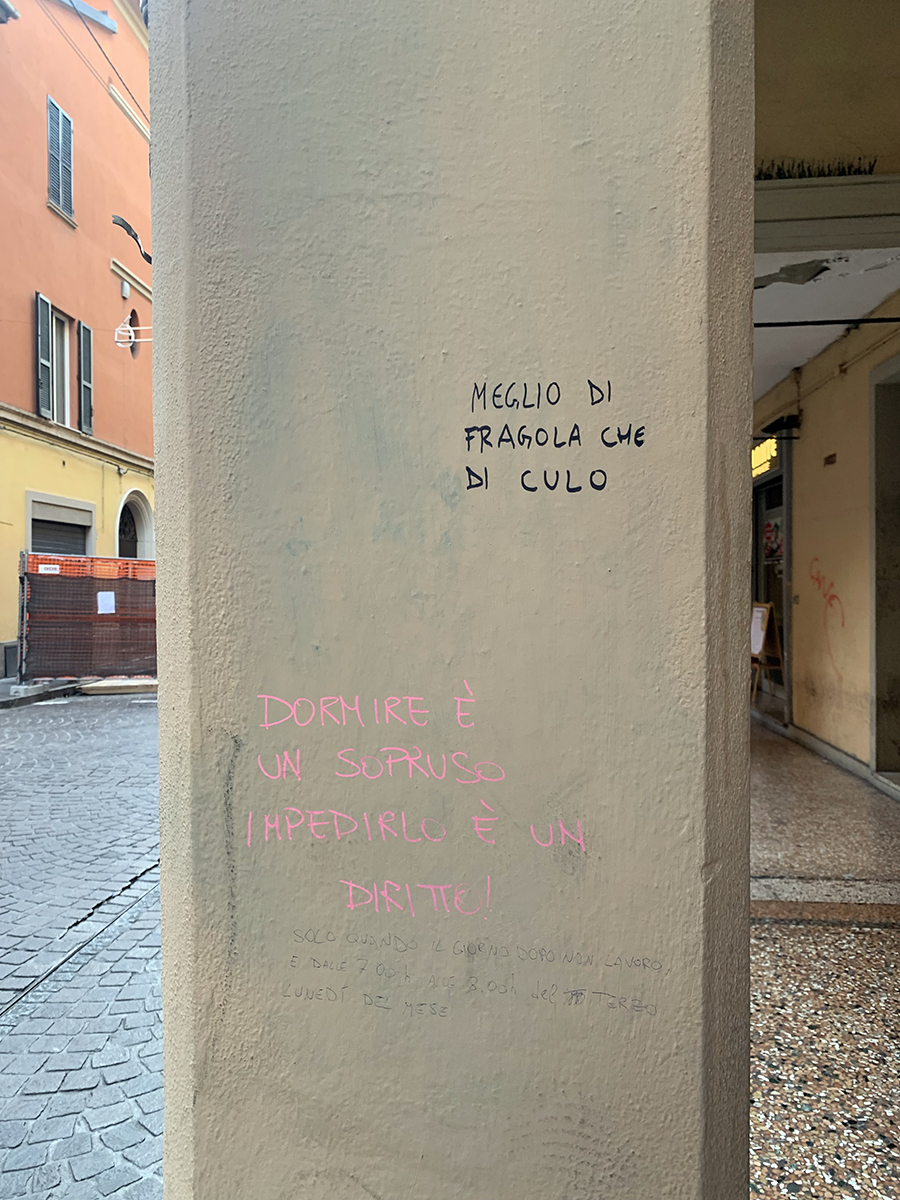 MEGLIO DI
FRAGOLA CHE
DI CULO
DORMIRE È
UN SOPRUSO
IMPEDIRLO È UN
DIRITTO!
SOLO QUANDO IL GIORNO DOPO NON LAVORO,
E DALLE 7.00h ALLE 8.00h del TERZO
LUNEDÍ DEL MESE